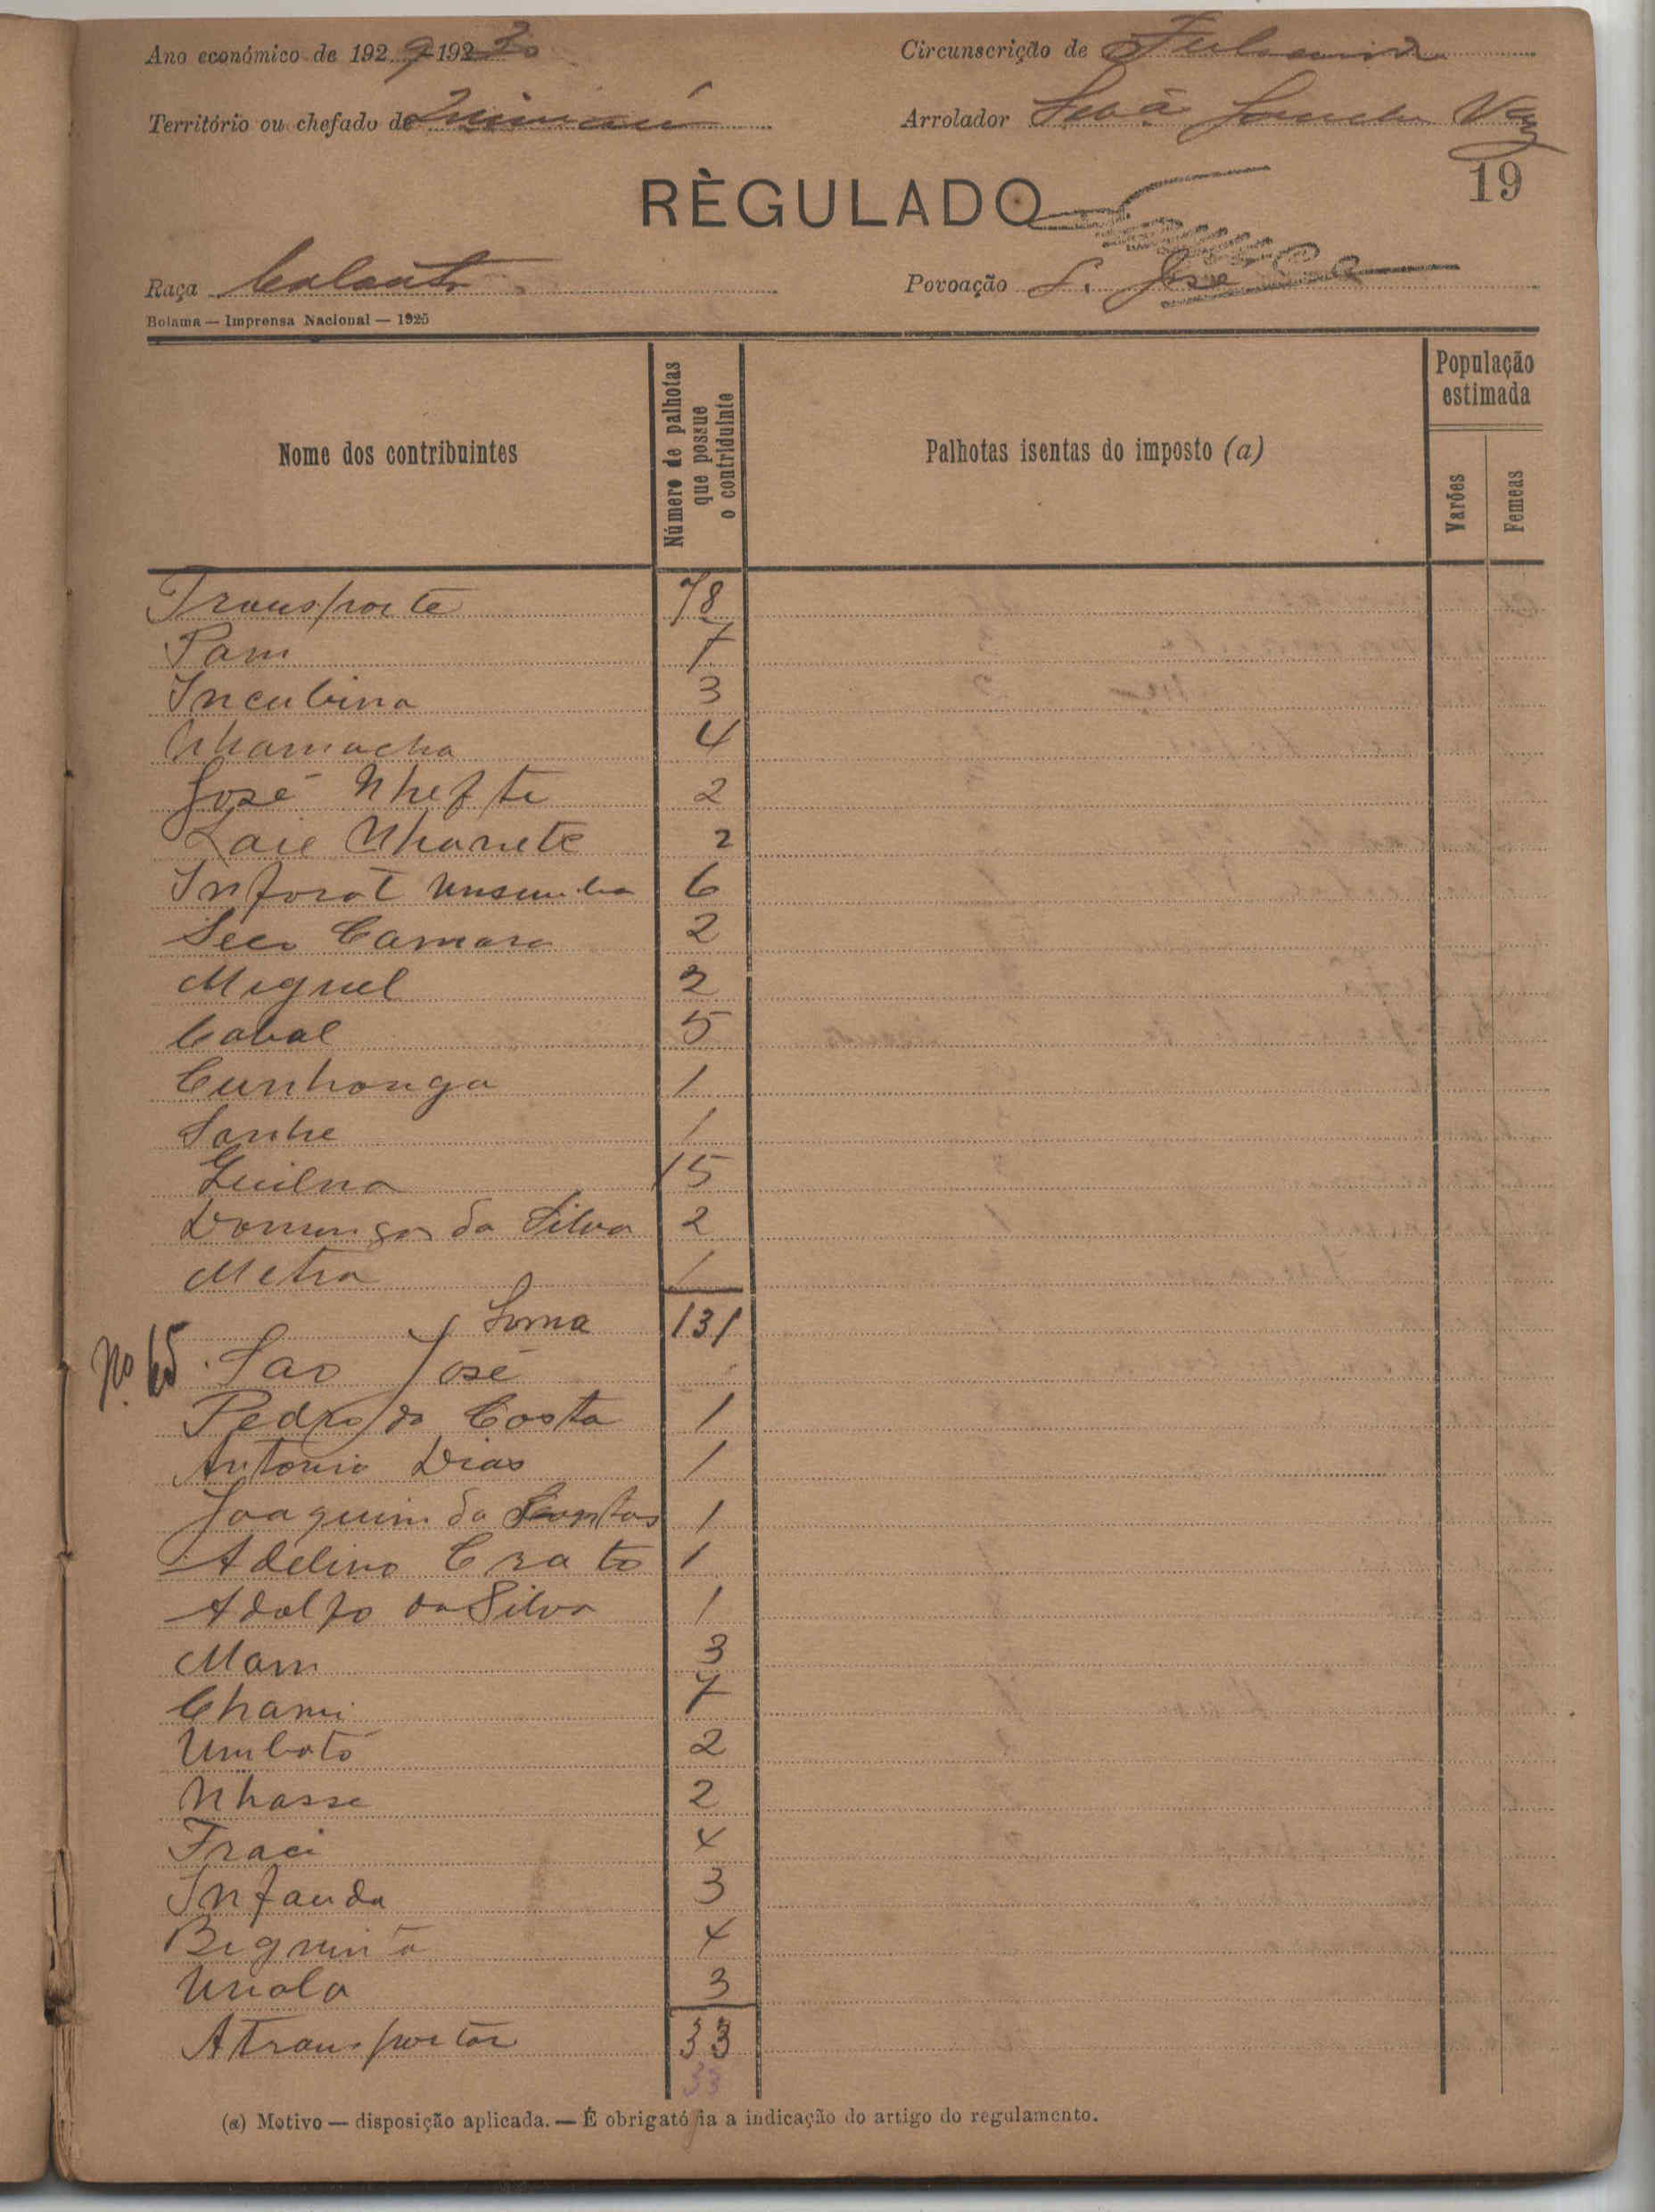 Ano económico de 1929-1930
Circunscrição de
Território ou chefado de
Arrolador Seb.ã Vaz
RÈGULADO
19
Raça
Povoação S. José
Bolama — Imprensa Nacional — 1925
Nome dos contribuintes
Número de palhotas que possue o contriduinte
Palhotas isentas do imposto (a)
População estimada
Varões
Femeas
Transporte 78
Pam 7
Incubina 3
Nhamacha 4
José Nhefte 2
Laie Nhanete 2
Inforot 6
Seco Camara 2
Miguel 2
Cabal 5
Cunhonga 1
Sanhe 1
Guilna 15
Domingos da Silva 2
Metna 1
Soma 131
No. 65 Sao José
Pedro da Costa 1
Antonio Dias 1
Joaquim da 1
Adelino Crato 1
Adolfo da Silva 1
Mam 3
Chami 7
Umbotó 2
Nhasse 2
Fraci 4
Infanda 3
Bigmitã 4
Unola 3
A transportar 33
33
(a) Motivo — disposição aplicada. — É obrigatória a indicação do artigo do regulamento.